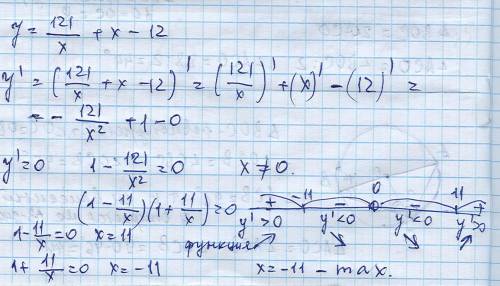 y = 121/x + x - 12
y' = (121/x + x - 12)' = (121/x)' + (x)' - (12)' =
= - 121/x² + 1 - 0
y' = 0 1 - 121/x² = 0 x ≠ 0.
(1 - 11/x)(1 + 11/x) = 0
+ -11 - 0 - 11 +
y' > 0 y' < 0 y' < 0 y' > 0
1 - 11/x = 0 x = 11
функция ↗ ↘ ↘ ↗
1 + 11/x = 0 x = -11 x = -11 - max.